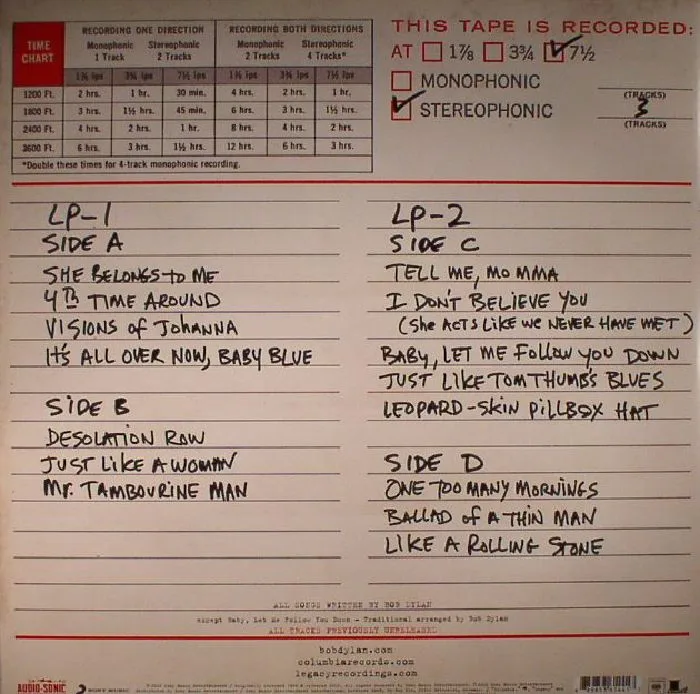 TIME CHART
RECORDING ONE DIRECTION
RECORDING BOTH DIRECTIONS
Monophonic 1 Track
Stereophonic 2 Tracks
Monophonic 2 Tracks
Stereophonic 4 Tracks*
1⅞ ips 3¾ ips 7½ ips 1⅞ ips 3¾ ips 7½ ips
1200 Ft. 2 hrs. 1 hr. 30 min. 4 hrs. 2 hrs. 1 hr.
1800 Ft. 3 hrs. 1½ hrs. 45 min. 6 hrs. 3 hrs. 1½ hrs.
2400 Ft. 4 hrs. 2 hrs. 1 hr. 8 hrs. 4 hrs. 2 hrs.
3600 Ft. 6 hrs. 3 hrs. 1½ hrs. 12 hrs. 6 hrs. 3 hrs.
*Double these times for 4-track monophonic recording.
THIS TAPE IS RECORDED:
AT 1⅞ 3¾ 7½
MONOPHONIC
(TRACKS)
STEREOPHONIC
3
(TRACKS)
LP-1
SIDE A
SHE BELONGS TO ME
4TH TIME AROUND
VISIONS of JOHANNA
IT'S ALL OVER NOW, BABY BLUE
SIDE B
DESOLATION ROW
JUST LIKE A WOMAN
Mr. TAMBOURINE MAN
LP-2
SIDE C
TELL ME, MOMMA
I DON'T BELIEVE YOU
(She ACTS LIKE WE NEVER HAVE MET)
BABY, LET ME Follow YOU DOWN
JUST LIKE TOM THUMB'S BLUES
LEOPARD-SKIN PILLBOX HAT
SIDE D
ONE TOO MANY MORNINGS
BALLAD of A THIN MAN
LIKE A ROLLING STONE
ALL SONGS WRITTEN BY BOB DYLAN
except Baby, Let Me Follow You Down - Traditional arranged by Bob Dylan
ALL TRACKS PREVIOUSLY UNRELEASED
bobdylan.com
columbiarecords.com
legacyrecordings.com
AUDIO-SONIC